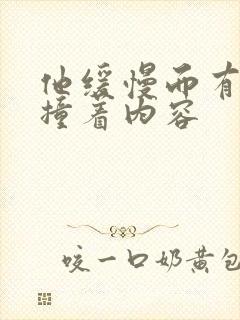 他缓慢而有
撞着内容
咬一口奶黄包